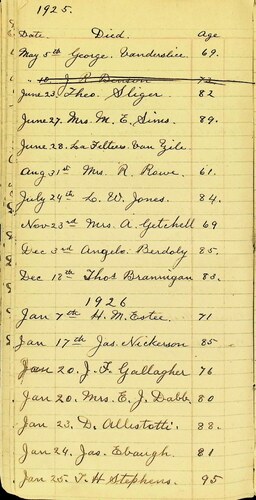 1925.
Date. Died. Age
May 5th George Vanderslice 69.
" 18 J R Benson 72
June 23, Theo. Sliger 82
June 27. Mrs. M. E. Sims 89.
June 28. La Fetters Van Zile
Aug 31st Mrs. R. Rowe. 61.
July 24th L. W. Jones. 84.
Nov 23rd Mrs. A. Getchell 69
Dec 3rd Angelo Berdoly 85.
Dec 18th Thos Brannigan 83.
1926
Jan 7th H. M. Estee. 71
Jan 17th Jas. Nickerson 85
Jan 20. J. F. Gallagher 76
Jan 20. Mrs. E. J. Dabb 80
Jan 23. D. Allestotti. 88.
Jan 24. Jas. Ebaugh. 81
Jan 25. T. H Stephens. 95